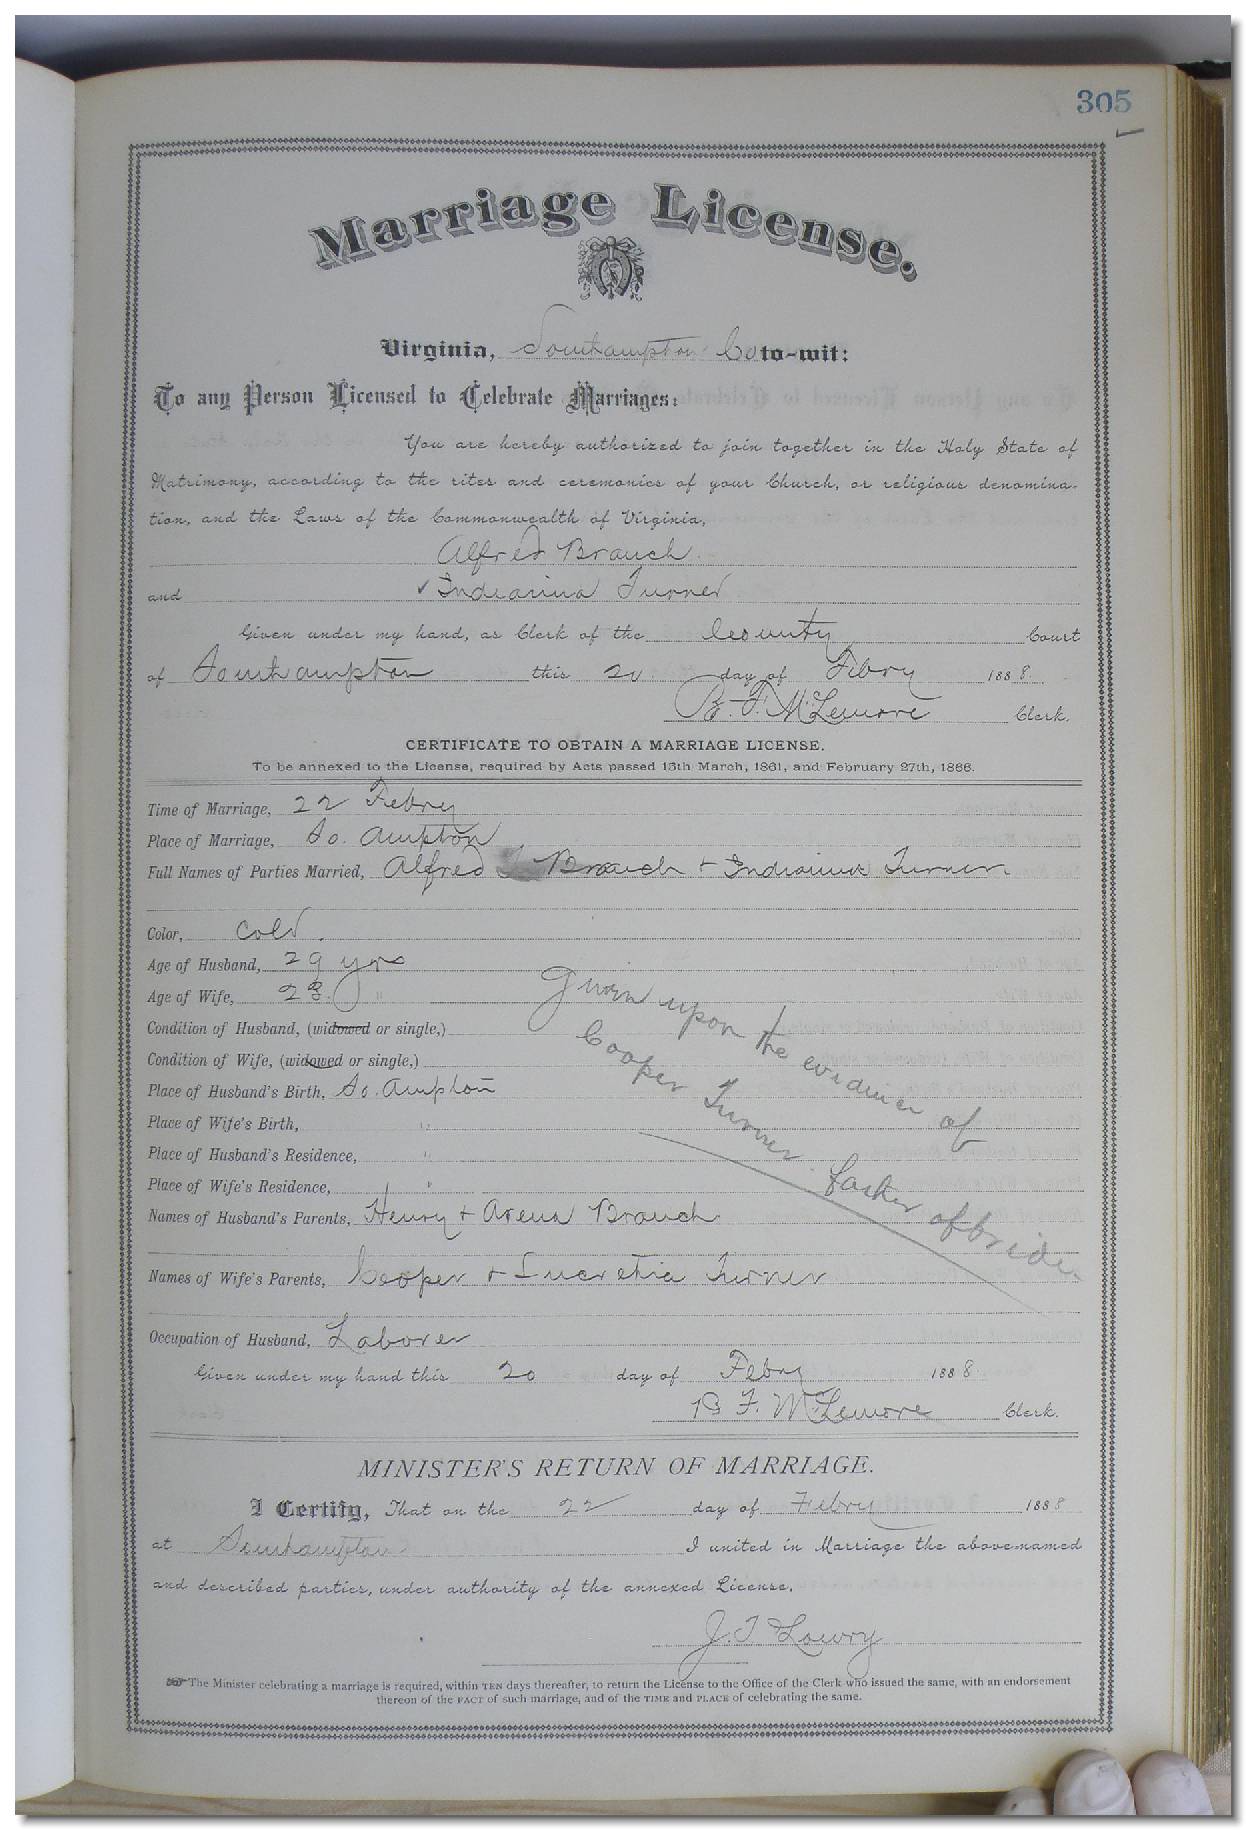 305
Marriage License.
Virginia, Southampton Co to-wit:
To any Person Licensed to Celebrate Marriages:
You are hereby authorized to join together in the Holy State of
Matrimony, according to the rites and ceremonies of your Church, or religious denomina-
tion, and the Laws of the Commonwealth of Virginia,
Alfred Branch
and Indianna Turner
Given under my hand, as Clerk of the County Court
of Southampton this 20 day of Febry 1888
B. F. McLemore Clerk.
CERTIFICATE TO OBTAIN A MARRIAGE LICENSE.
To be annexed to the License, required by Acts passed 15th March, 1861, and February 27th, 1866.
Time of Marriage, 22 Febry
Place of Marriage, So. ampton
Full Names of Parties Married, Alfred Branch + Indianna Turner
Color, cold.
Age of Husband, 29 yrs
Age of Wife, 23 "
Condition of Husband, (widowed or single,)
Condition of Wife, (widowed or single,)
Place of Husband's Birth, So. ampton
Place of Wife's Birth, "
Place of Husband's Residence, "
Place of Wife's Residence, "
Given upon the evidence of
Cooper Turner father of bride.
Names of Husband's Parents, Henry + Arena Branch
Names of Wife's Parents, Cooper + Lucretia Turner
Occupation of Husband, Laborer
Given under my hand this 20 day of Febry 1888
B F. McLemore Clerk.
MINISTER'S RETURN OF MARRIAGE.
I Certify, That on the 22 day of Febry 1888
at Southampton I united in Marriage the above-named
and described parties, under authority of the annexed License.
J. T Lowry
The Minister celebrating a marriage is required, within TEN days thereafter, to return the License to the Office of the Clerk who issued the same, with an endorsement
thereon of the FACT of such marriage, and of the TIME and PLACE of celebrating the same.